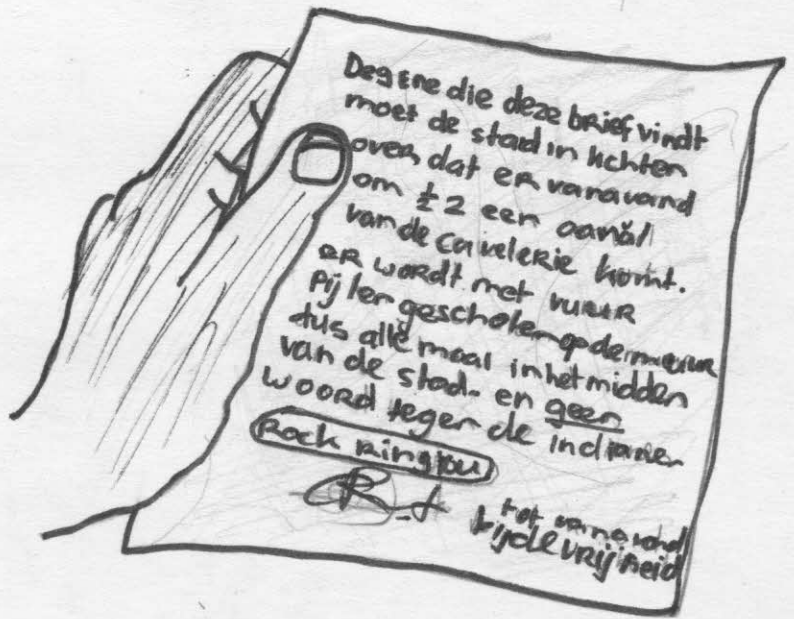 Degene die deze brief vindt
moet de stad in lichten
over dat er vanavand
om ½ 2 een aanval
van de cavelerie komt.
ER wordt met vuur
Pijlen geschoten op de muur
dus alle maal in het midden
van de stad- en geen
woord tegen de indianen
Rock
tot vanavond
bij de vrijheid